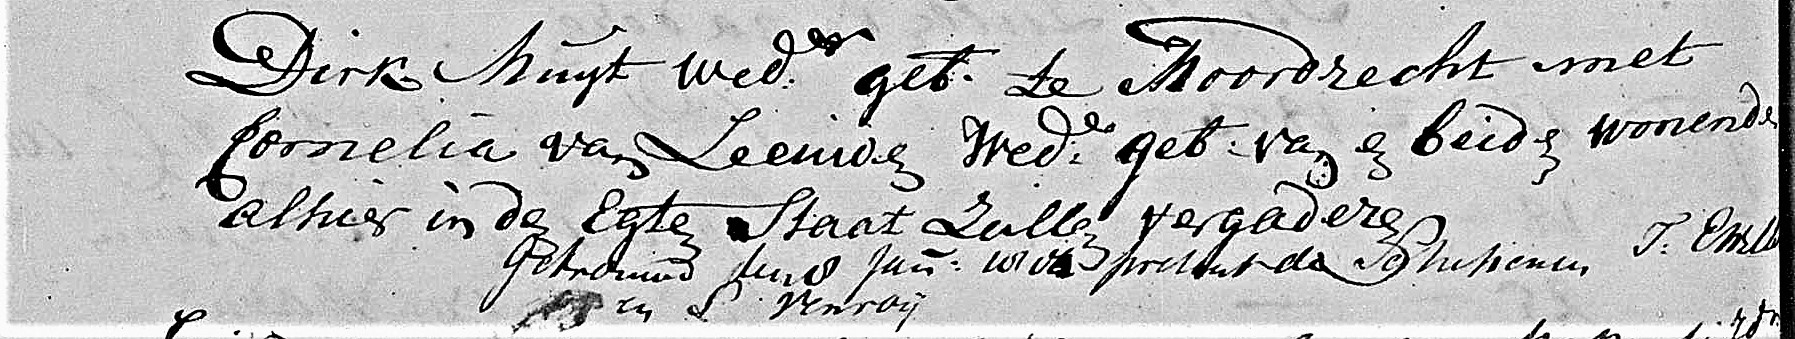 Dirk Muyt wed.r geb. te Moordrecht met
Cornelia van Leeuwen Wed.e geb. van en beiden wonende
alhier in den Egten Staat Zullen vergaderen
Getrouwd den 8 Jan: present de Schepenen T.
en L Venroij